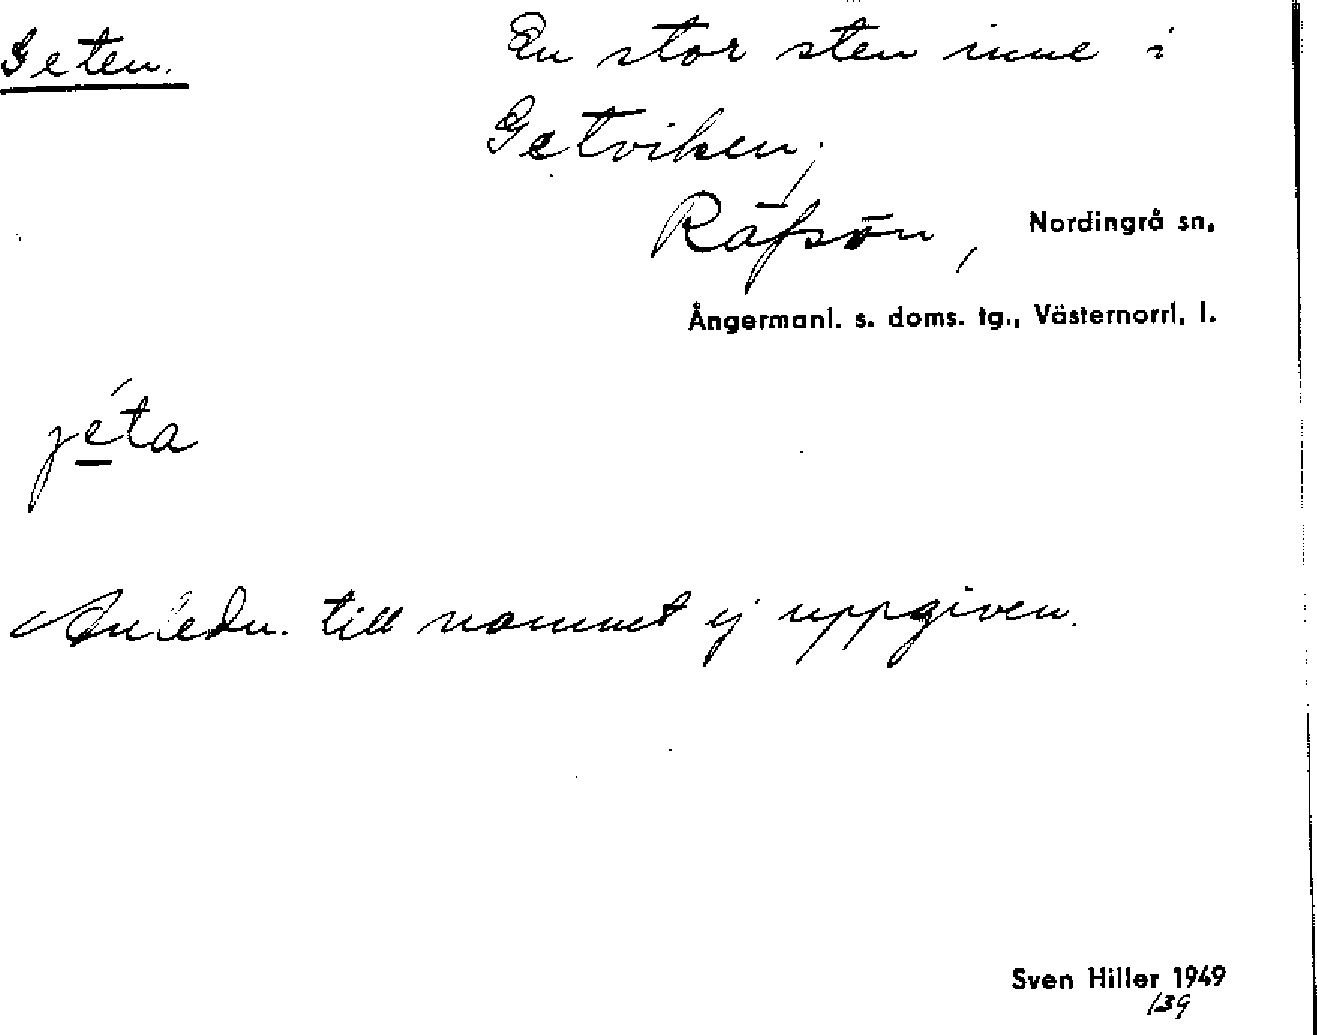 Geten.
En stor sten inne i
Getviken,
Räfsön, Nordingrå sn,
Ångermanl. s. doms. tg., Västernorrl. l.
jéta
Anledn. till namnet ej uppgiven.
Sven Hiller 1949
139